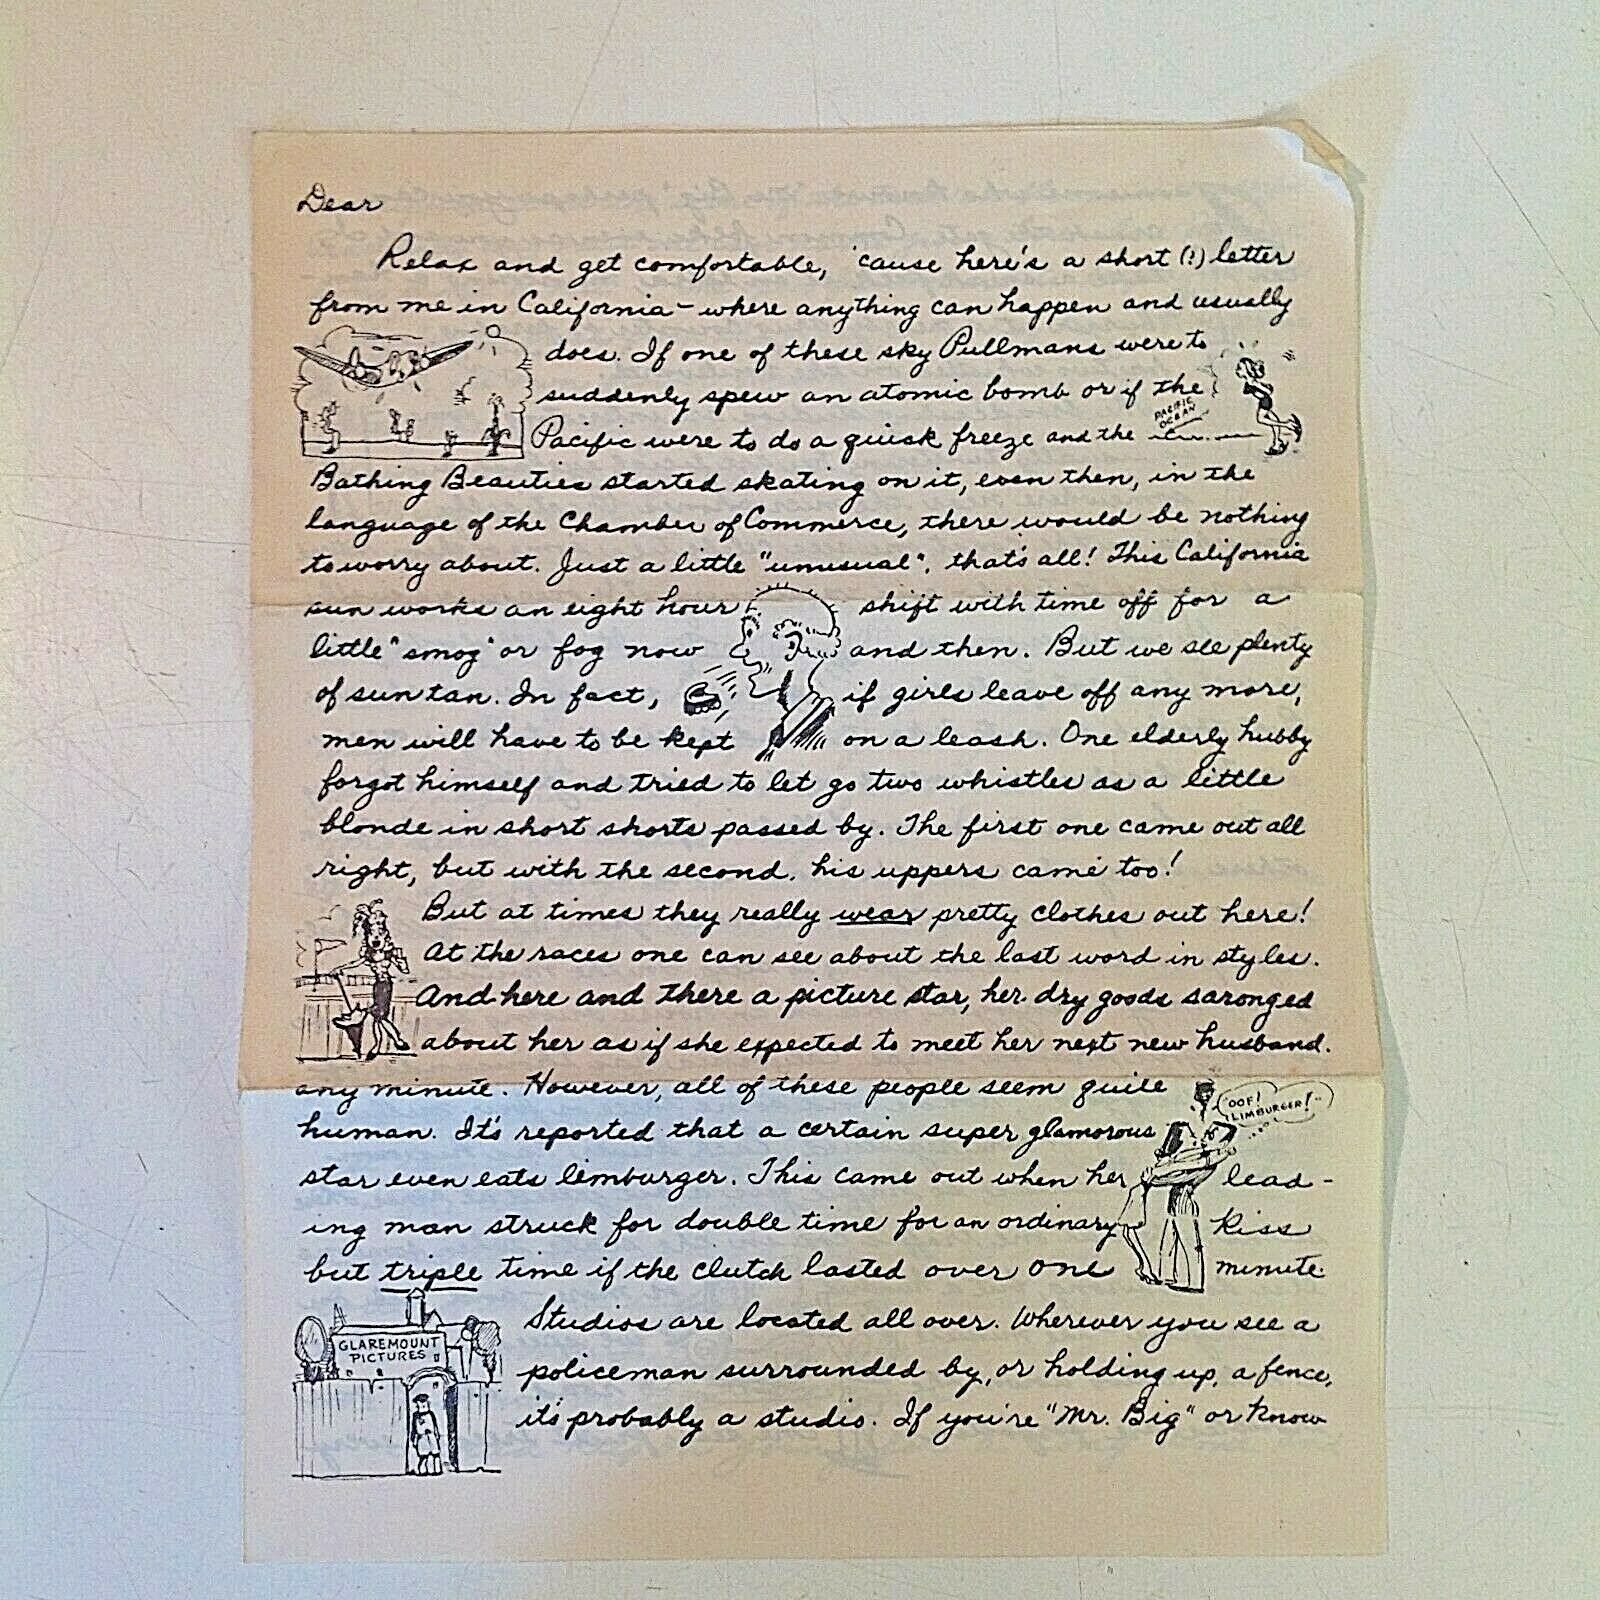 Dear
Relax and get comfortable, 'cause here's a short (?) letter
from me in California - where anything can happen and usually
does. If one of these sky Pullmans were to
suddenly spew an atomic bomb or if the
PACIFIC
OCEAN
Pacific were to do a quick freeze and the
Bathing Beauties started skating on it, even then, in the
language of the Chamber of Commerce, there would be nothing
to worry about. Just a little "unusual", that's all! This California
sun works an eight hour shift with time off for a
little "smog" or fog now and then. But we see plenty
of sun tan. In fact, if girls leave off any more,
men will have to be kept on a leash. One elderly hubby
forgot himself and tried to let go two whistles as a little
blonde in short shorts passed by. The first one came out all
right, but with the second, his uppers came too!
But at times they really wear pretty clothes out here!
At the races one can see about the last word in styles.
And here and there a picture star, her dry goods saronged
about her as if she expected to meet her next new husband.
any minute. However, all of these people seem quite
"OOF!
LIMBURGER!"
human. It's reported that a certain super glamorous
star even eats limburger. This came out when her lead-
ing man struck for double time for an ordinary kiss
but triple time if the clutch lasted over one minute.
GLAREMOUNT
PICTURES
Studios are located all over. Wherever you see a
policeman surrounded by, or holding up, a fence,
it's probably a studio. If you're "Mr. Big" or know